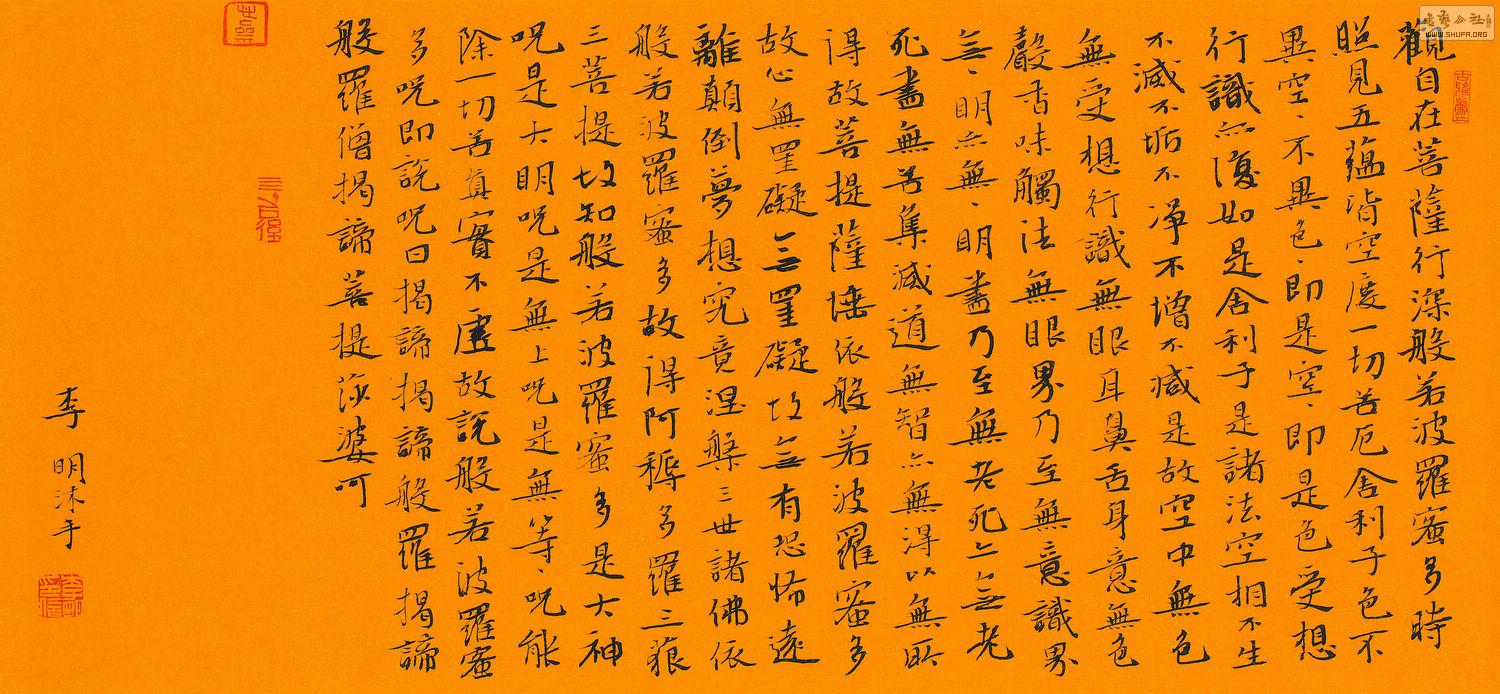 觀自在菩薩行深般若波羅蜜多時
照見五蘊皆空度一切苦厄舍利子色不
異空、不異色、即是空、即是色受想
行識亦復如是舍利子是諸法空相不生
不滅不垢不淨不增不減是故空中無色
無受想行識無眼耳鼻舌身意無色
聲香味觸法無眼界乃至無意識界
無、明亦無、明盡乃至無老死亦無老
死盡無苦集滅道無智亦無得以無所
得故菩提薩埵依般若波羅蜜多
故心無罣礙無罣礙故無有恐怖遠
離顛倒夢想究竟涅槃三世諸佛依
般若波羅蜜多故得阿耨多羅三藐
三菩提故知般若波羅蜜多是大神
呪是大明呪是無上呪是無等、呪能
除一切苦真實不虛故說般若波羅蜜
多呪即說呪曰揭諦揭諦般羅揭諦
般羅僧揭諦菩提莎婆呵
李明沐手
WWW.SHUFA.ORG